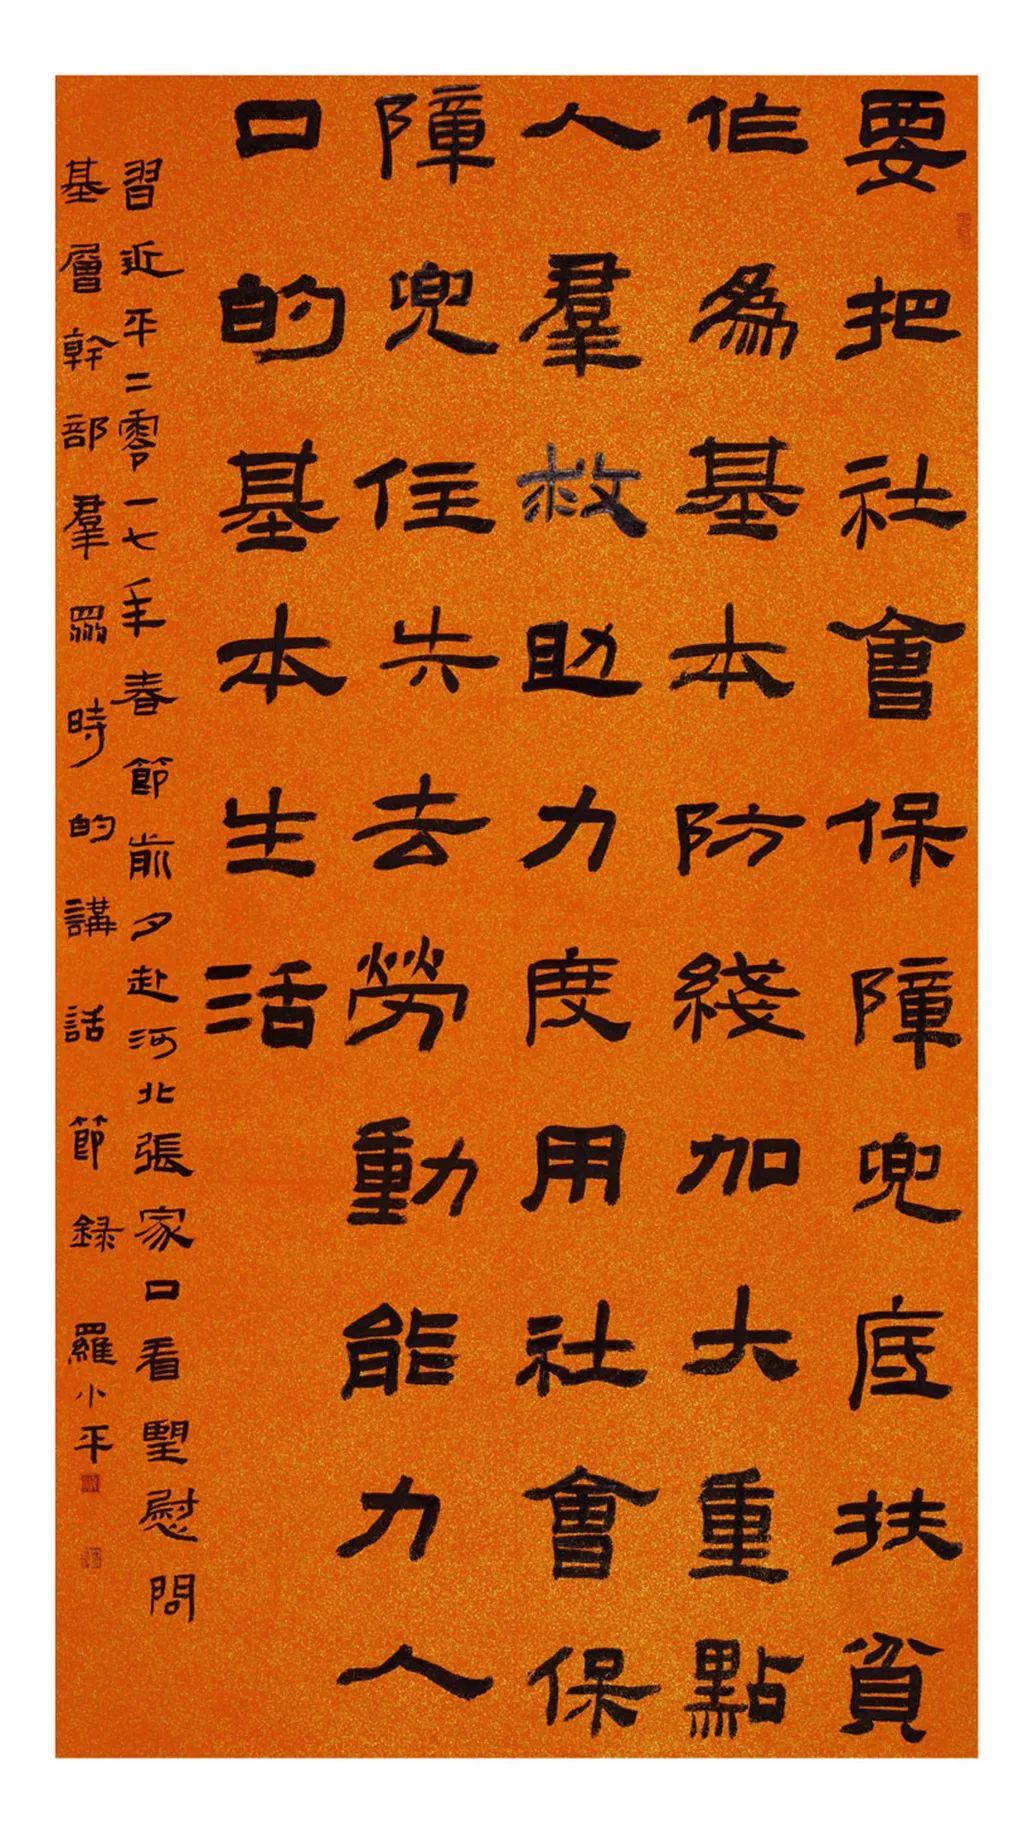 要把社會保障兜底扶貧
作為基本防綫加大重點
人羣救助力度用社會保
障兜住失去勞動能力人
口的基本生活
習近平二零一七年春節前夕赴河北張家口看朢慰問
基層幹部羣眾時的講話節録羅小平